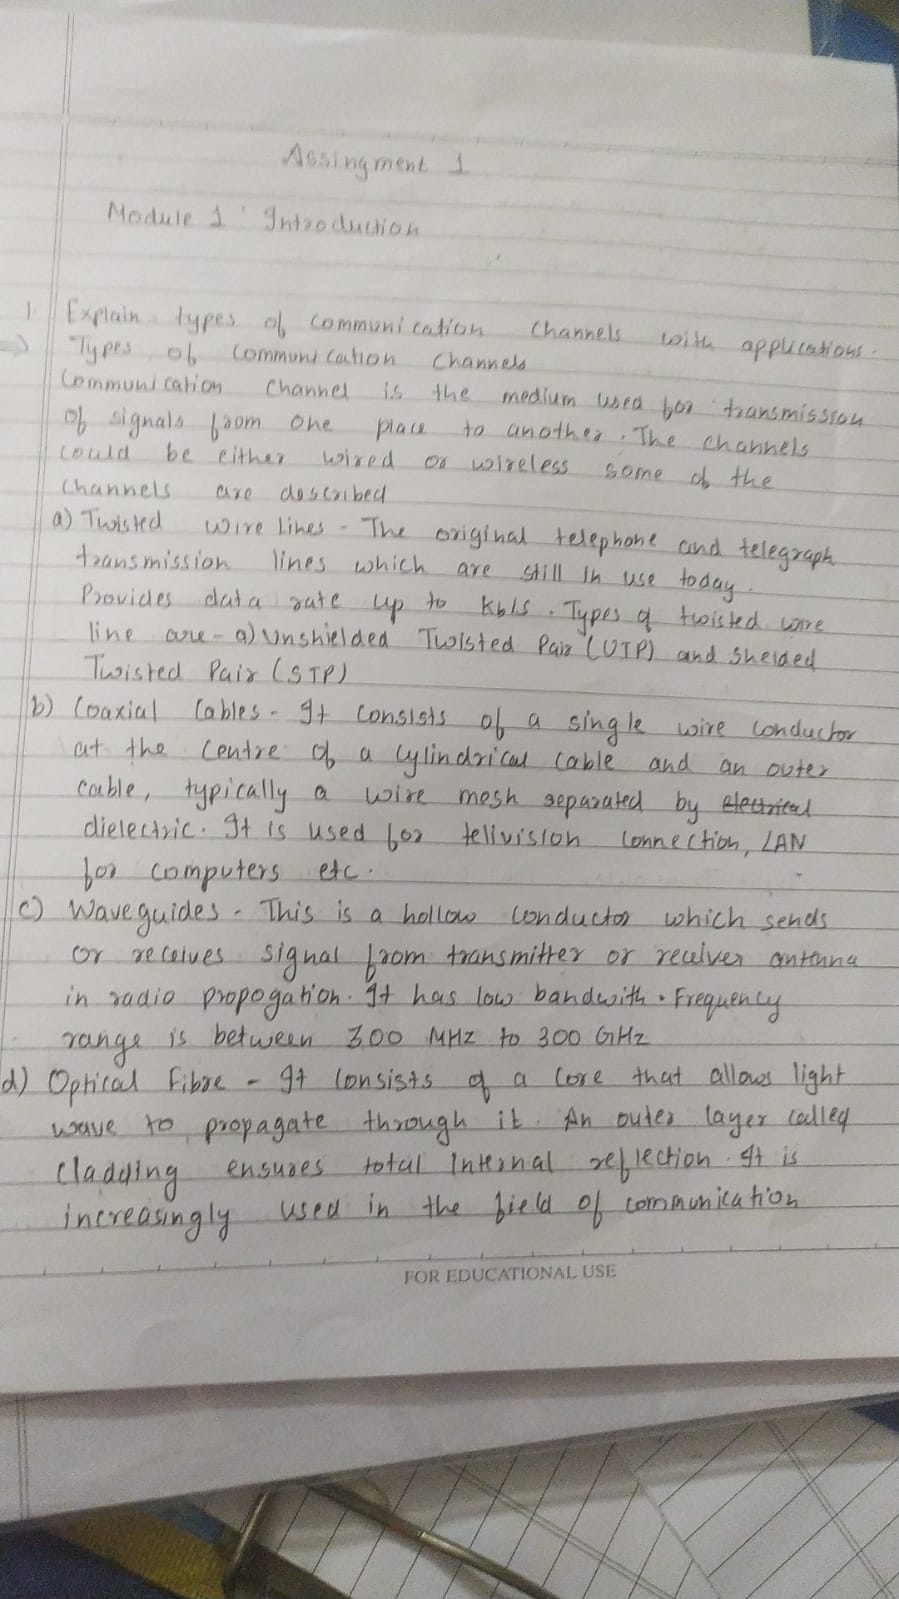 Assingment 1
Module 1 : Introduction
1. Explain types of communication channels with applications.
→ Types of communication channels
Communication channel is the medium used for transmission
of signals from one place to another. The channels
could be either wired or wireless some of the
channels are described
a) Twisted wire lines - The original telephone and telegraph
transmission lines which are still in use today.
Provides data rate up to kb/s. Types of twisted wire
line are - a) Unshielded Twisted Pair (UTP) and shelded
Twisted Pair (STP)
b) Coaxial Cables - It consists of a single wire conductor
at the centre of a cylindrical cable and an outer
cable, typically a wire mesh separated by electrical
dielectric. It is used for tellivision connection, LAN
for computers etc.
c) Waveguides - This is a hollow conductor which sends
or receives signal from transmitter or reciver antenna
in radio propogation. It has low bandwith. Frequency
range is between 300 MHz to 300 GHz
d) Optical Fibre - It consists of a core that allows light
wave to propagate through it. An outer layer called
cladding ensures total internal reflection. It is
increasingly used in the field of communication
FOR EDUCATIONAL USE